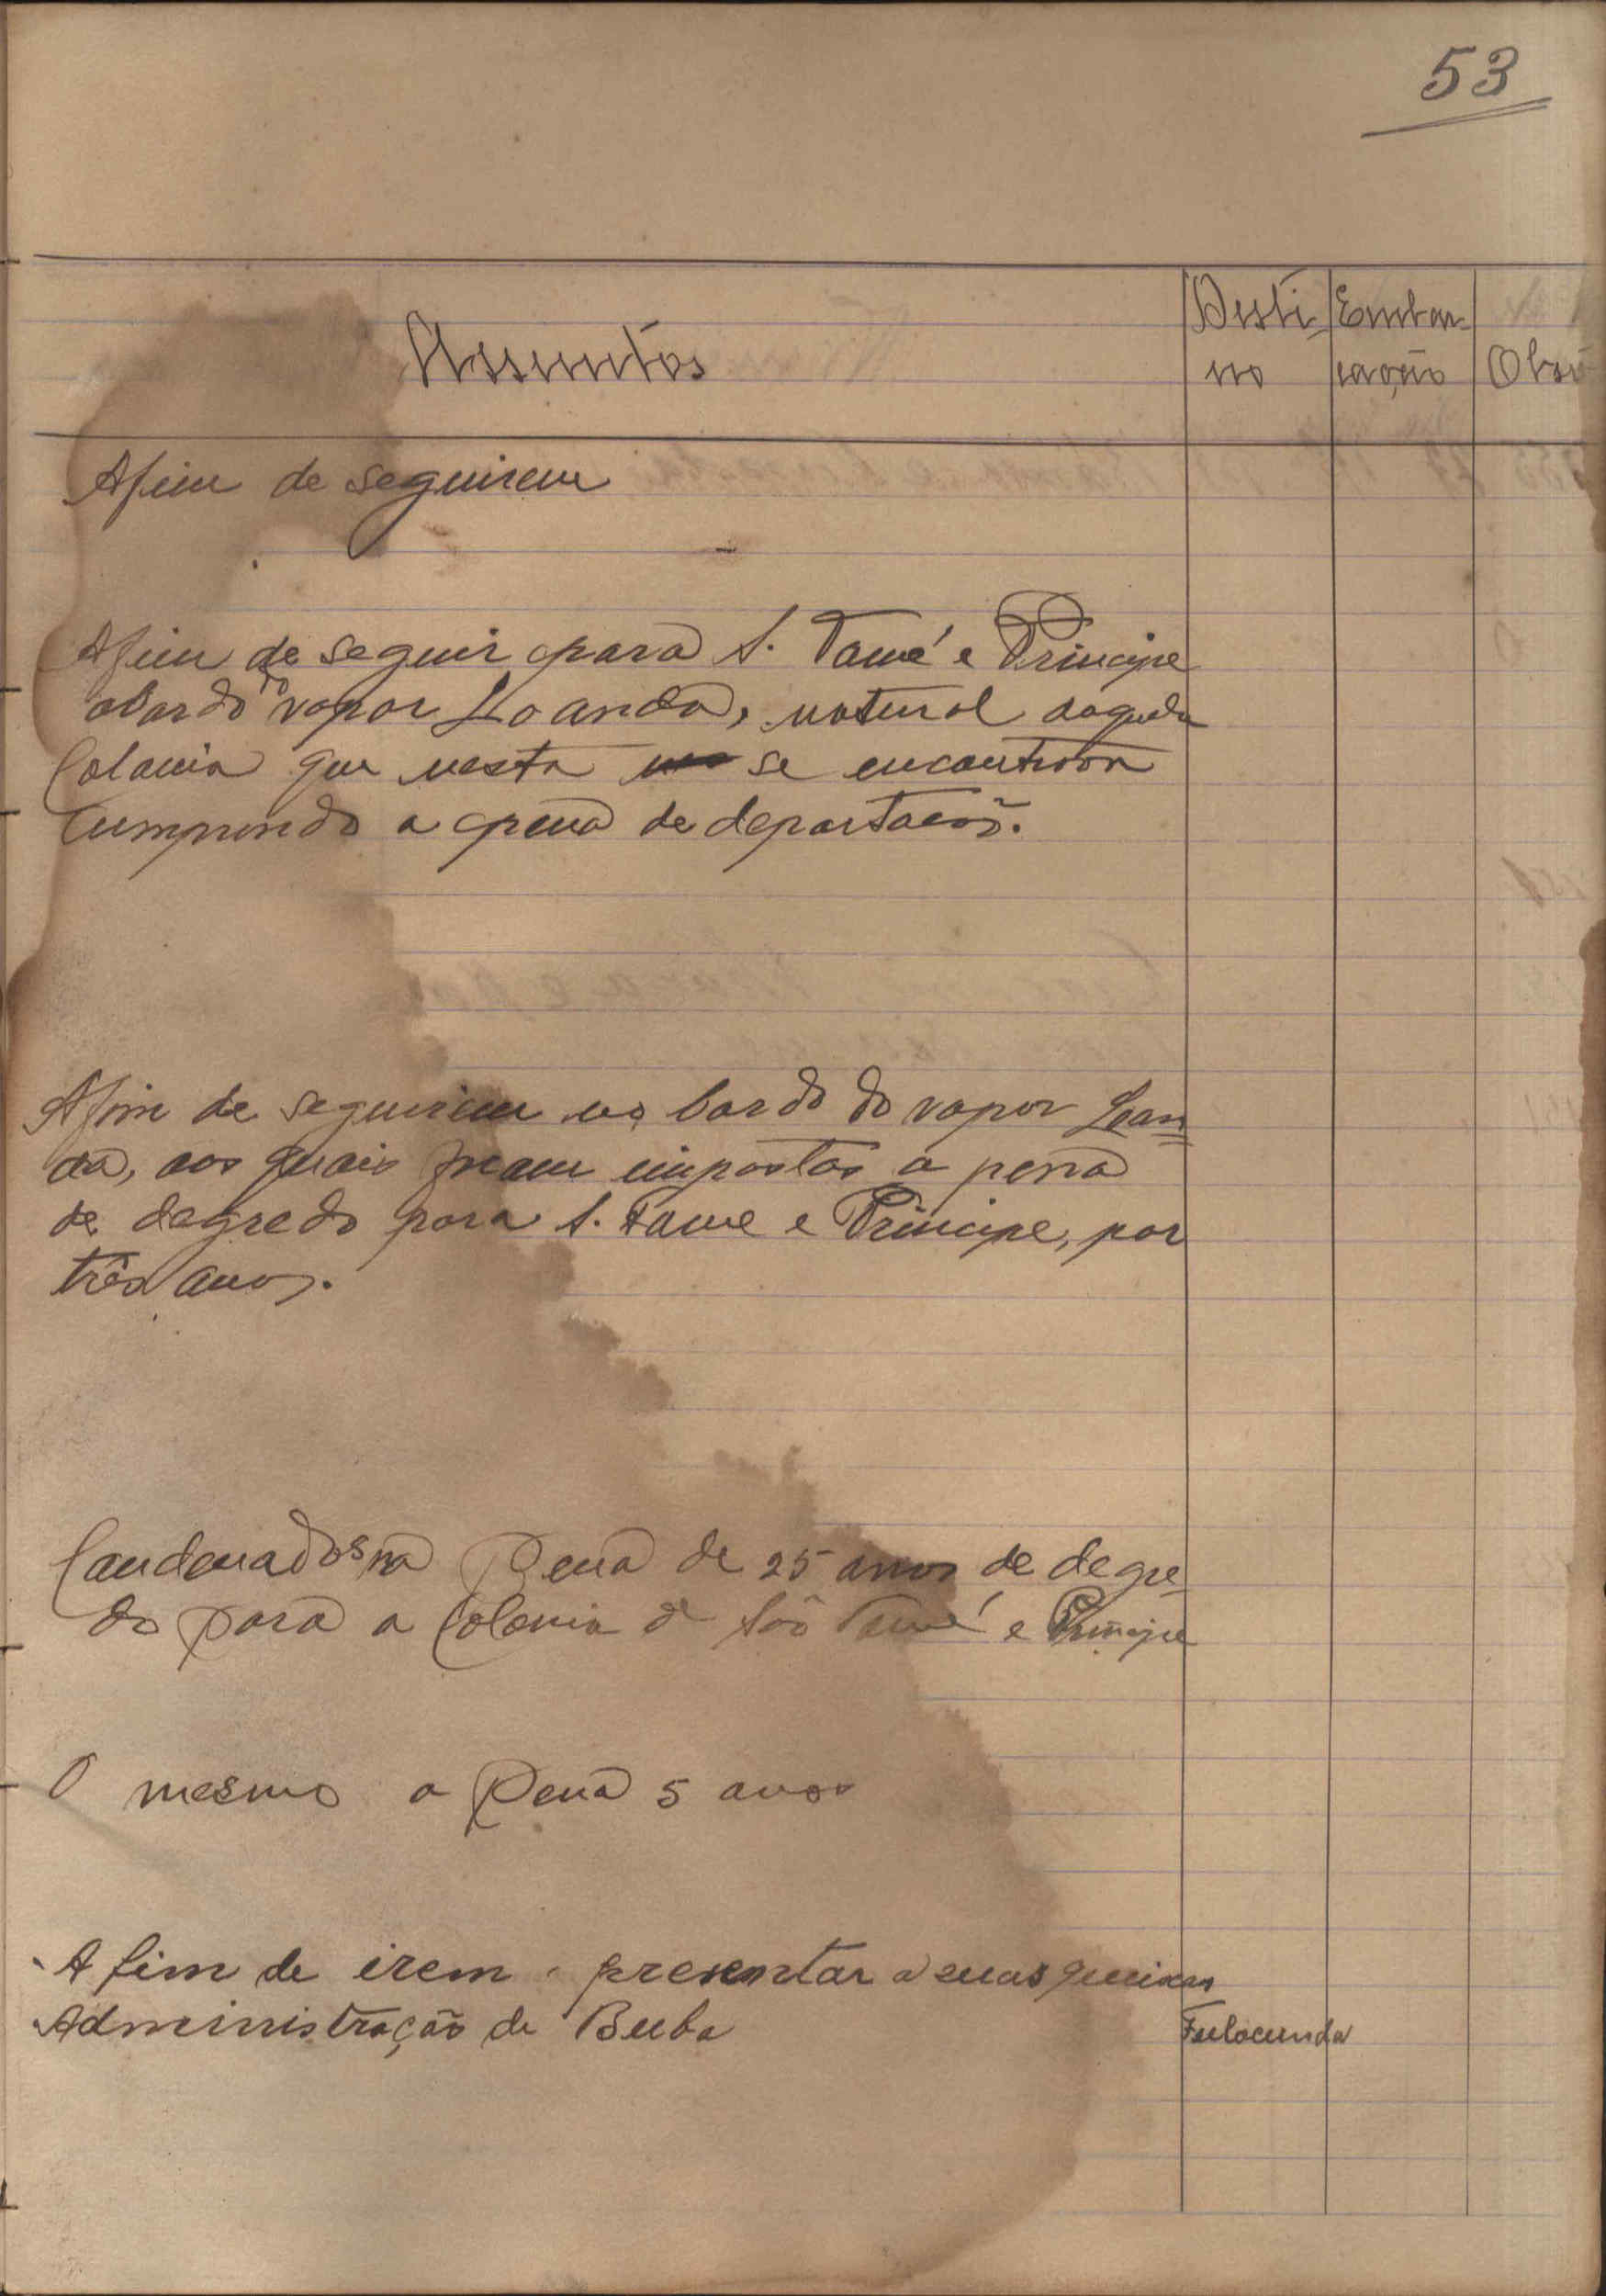 53
Assuntos
Desti-
no
Embar-
cação
Obsv
Afim de seguirem
Afim de seguir para S. Tomé e Principe
abordo do vapor Loanda, natural daquela
Colonia que nesta se encontrava
cumprindo a pena de deportação.
Afim de seguirem no bordo do vapor Loan=
da, aos quais foram impostos a pena
de degredo para S. Tome e Principe, por
três anos.
Condenados na Pena de 25 anos de degre-
do para a Colonia de São Tomé e Principe
O mesmo a Pena 5 anos
A fim de irem presentar a suas queixas
Administração de Buba
Fulacunda